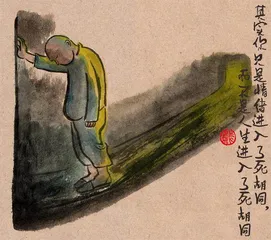 其实你只是情绪进入了死胡同，
而不是人生进入了死胡同